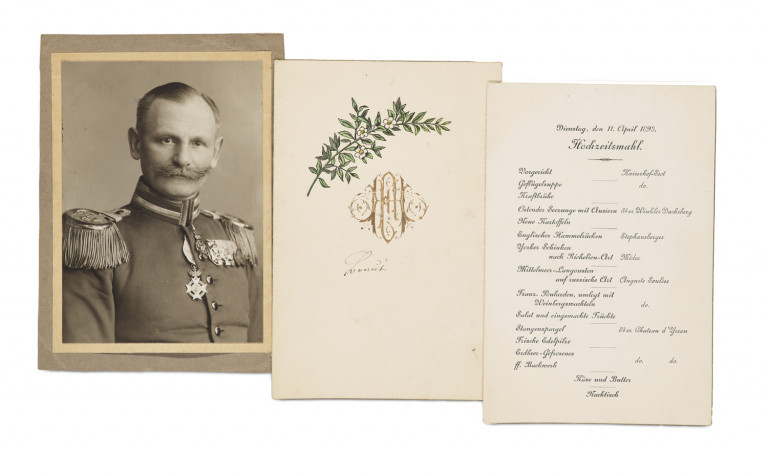 Dienstag, den 11. April 1893.
Hochzeitsmahl.
Vorgericht Kaiserhof-Sect
Geflügelsuppe do.
Kraftbrühe
Ostender Seezunge mit Austern 84er Winkler Dachsberg
Neue Kartoffeln
Englischer Hammelrücken Stephansberger
Yorker Schinken
nach Richelieu-Art Médoc
Mittelmeer-Langousten
auf russische Art Auguste
Franz. Poularden, umlegt mit
Weinbergswachteln do.
Salat und eingemachte Früchte
Stangenspargel 84er Chateau d'Yssan
Frische Edelpilze
Erdbeer-Gefrorenes do. do.
ff. Backwerk
Käse und Butter
Nachtisch